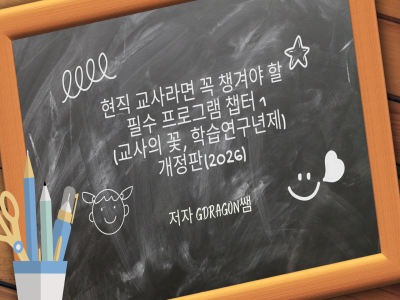 현직 교사라면 꼭 챙겨야 할
필수 프로그램 챕터 1
(교사의 꽃, 학습연구년제)
개정판(2026)
저자 GDRAGON쌤